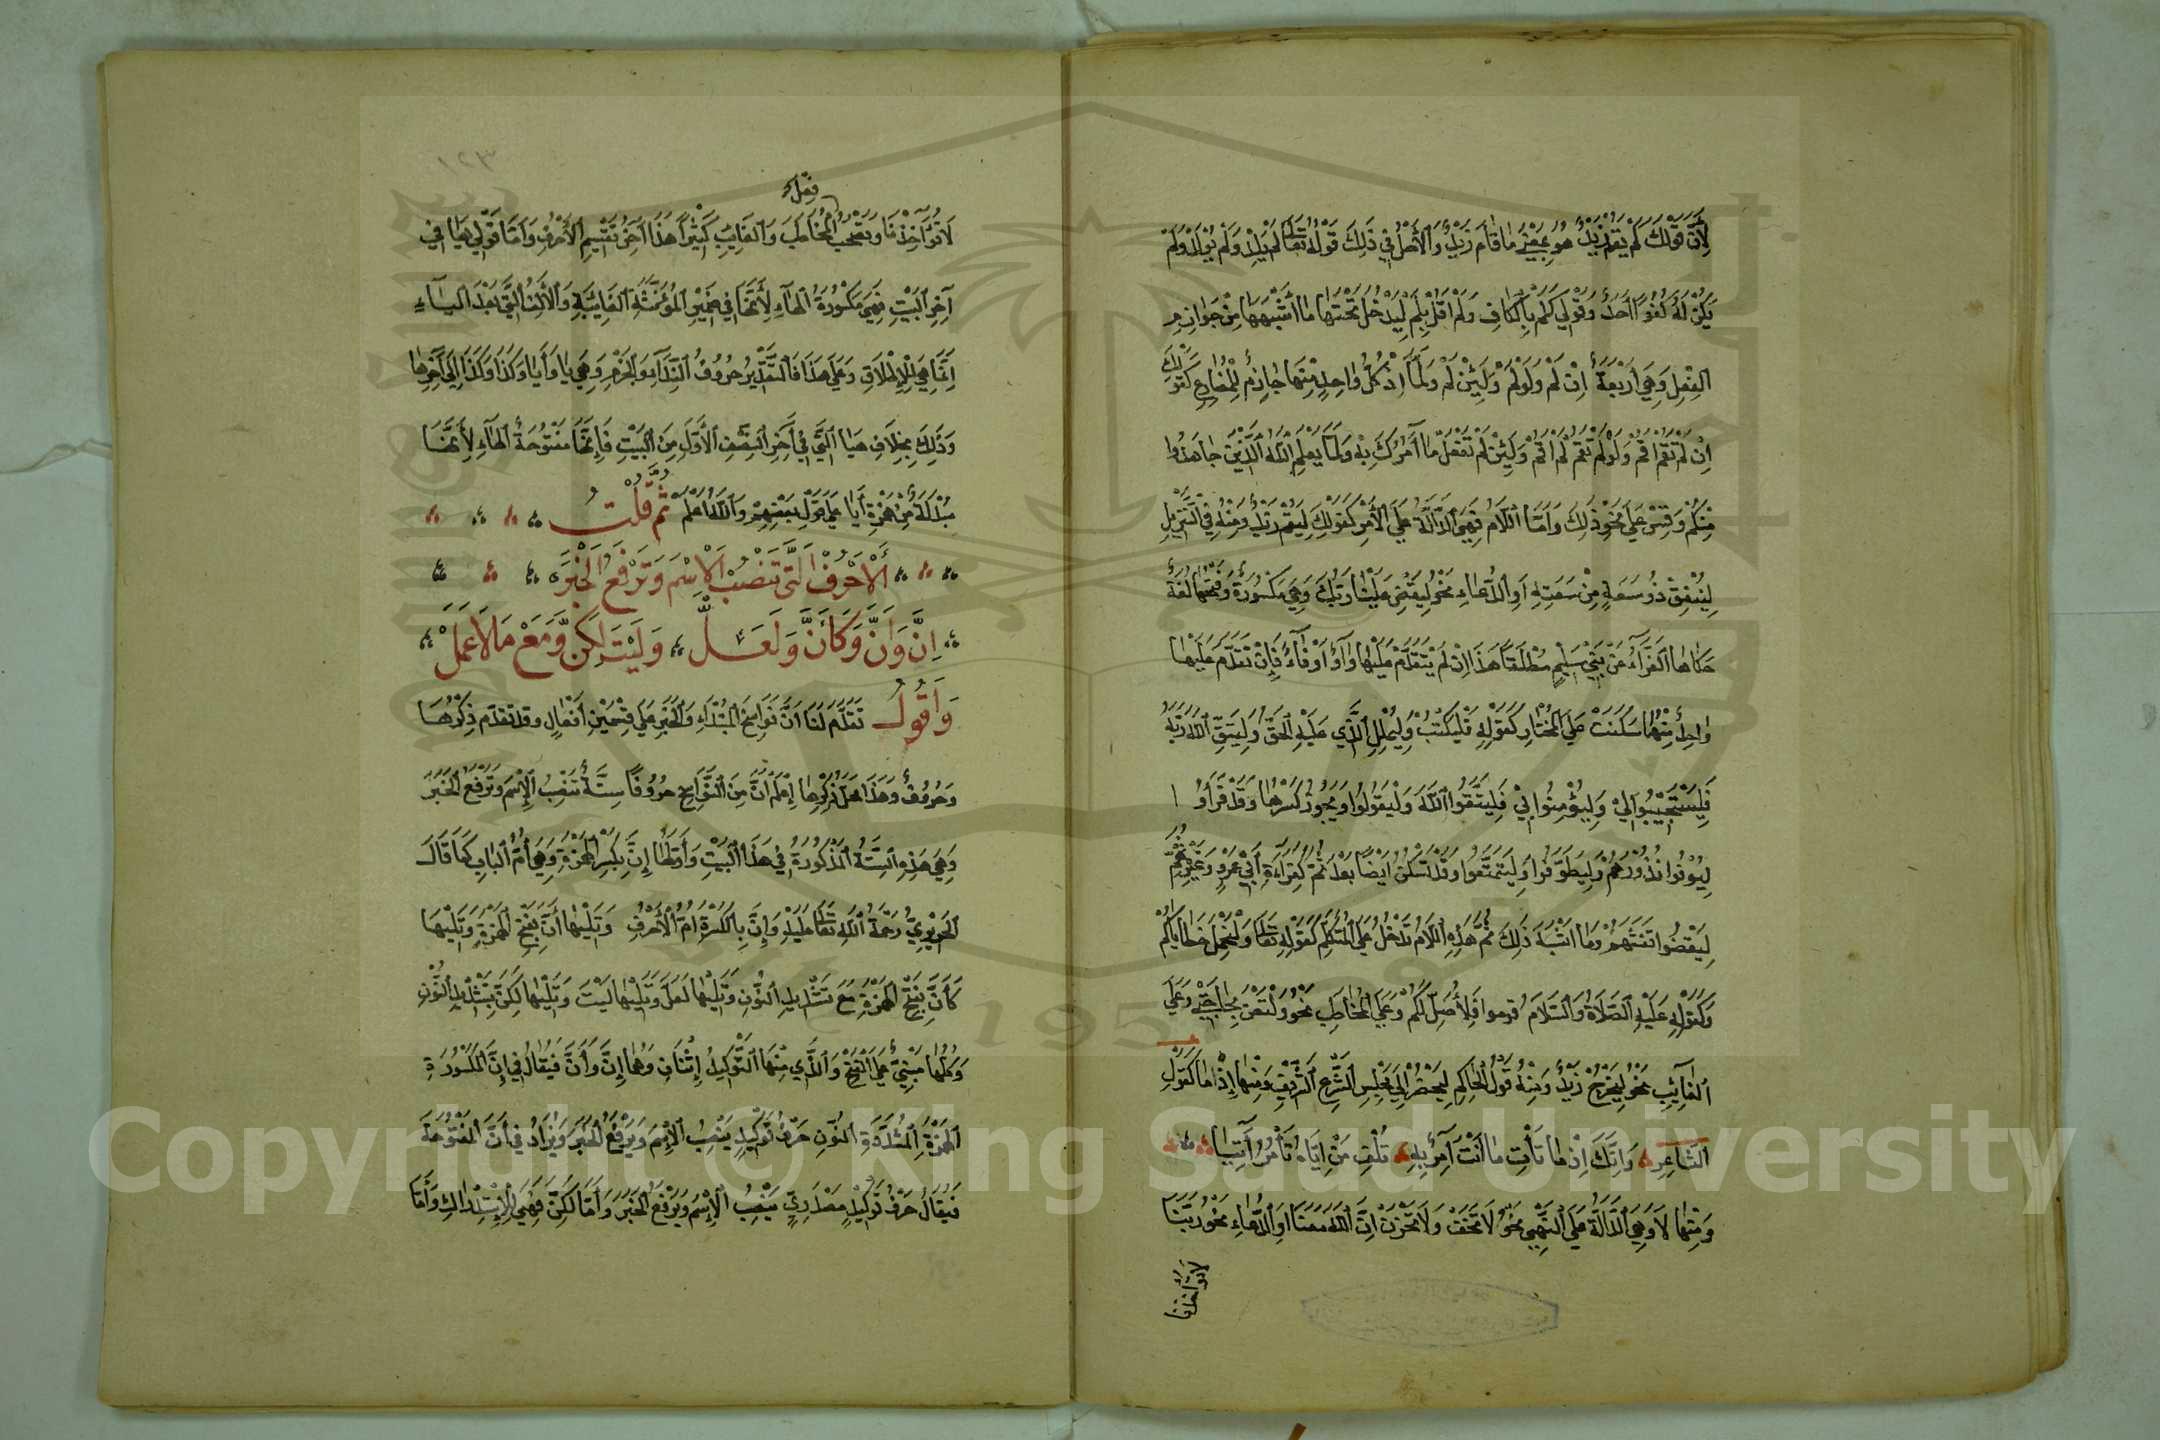 لِأَنَّ قَوْلَكَ لَمْ يَقُمْ زَيْدٌ هُوَ بِمَعْنَى مَا قَامَ زَيْدٌ وَالأَصْلُ فِي ذَلِكَ قَوْلُهُ تَعَالَى لَمْ يَلِدْ وَلَمْ يُولَدْ وَلَمْ
يَكُنْ لَهُ كُفُوًا أَحَدٌ وَقَوْلِي كَلَمْ بِالْكَافِ وَلَمْ أَقُلْ بِلَمْ لِيَدْخُلَ تَحْتَهَا مَا أَشْبَهَهَا مِنْ جَوَازِمِ
الْفِعْلِ وَهِيَ أَرْبَعَةٌ إِنْ لَمْ وَلَوْ لَمْ وَلَئِنْ لَمْ وَلَمَّا إِذْ كُلُّ وَاحِدٍ مِنْهَا جَازِمٌ لِلْمُضَارِعِ كَقَوْلِكَ
إِنْ لَمْ تَقُمْ أَقُمْ وَلَوْ لَمْ تَقُمْ لَمْ أَقُمْ وَلَئِنْ لَمْ تَفْعَلْ مَا آمُرُكَ بِهِ وَلَمَّا يَعْلَمِ اللَّهُ الَّذِينَ جَاهَدُوا
مِنْكُمْ وَقِسْ عَلَى نَحْوِ ذَلِكَ وَأَمَّا اللَّامُ فَهِيَ الدَّالَّةُ عَلَى الأَمْرِ كَقَوْلِكَ لِيَقُمْ زَيْدٌ وَمِنْهُ فِي التَّنْزِيلِ
لِيُنْفِقْ ذُو سَعَةٍ مِنْ سَعَتِهِ أَوِ الدُّعَاءِ نَحْوُ لِيَقْضِ عَلَيْنَا رَبُّكَ وَهِيَ مَكْسُورَةٌ وَفَتْحُهَا لُغَةٌ
حَكَاهَا الفَرَّاءُ عَنْ بَنِي سَلِيمٍ مُطْلَقًا هَذَا إِنْ لَمْ يَتَقَدَّمْ عَلَيْهَا وَاوٌ أَوْ فَاءٌ فَإِنْ تَقَدَّمَ عَلَيْهَا
وَاحِدٌ مِنْهُمَا سَكَنَتْ عَلَى المُخْتَارِ كَقَوْلِهِ فَلْيَكْتُبْ وَلْيُمْلِلِ الَّذِي عَلَيْهِ الحَقُّ وَلْيَتَّقِ اللَّهَ رَبَّهُ
فَلْيَسْتَجِيبُوا لِي وَلِيُؤْمِنُوا بِي فَلِيَتَّقُوا اللَّهَ وَلْيَقُولُوا وَيَجُوزُ كَسْرُهَا وَقَدْ قَرَأُو ا
لِيُوفُوا نُذُورَهُمْ وَلِيَطَّوَّفُوا وَلِيَتَمَتَّعُوا وَقَدْ تَسْكُنُ أَيْضًا بَعْدَ ثُمَّ كَقِرَاءَةِ أَبِي عَمْرٍو وَغَيْرِهِ ثُمَّ
لِيَقْضُوا تَفَثَهُمْ وَمَا أَشْبَهَ ذَلِكَ ثُمَّ هَذِهِ اللَّامُ تَدْخُلُ عَلَى المُتَكَلِّمِ كَقَوْلِهِ تَعَالَى وَلْنَحْمِلْ خَطَايَاكُمْ
وَكَقَوْلِهِ عَلَيْهِ الصَّلَاةُ وَالسَّلَامُ قُومُوا فَلِأُصَلِّ لَكُمْ وَعَلَى المُخَاطَبِ نَحْوُ وَلْتُعْنَ بِحَاجَتِي وَعَلَى
الغَائِبِ نَحْوُ لِيَخْرُجْ زَيْدٌ وَمِنْهُ قَوْلُ الحَاكِمِ لِيَحْضُرْ إِلَى مَجْلِسِ الشَّرْعِ الشَّرِيفِ وَمِنْهَا إِذْ مَا كَقَوْلِ
الشَّاعِرِ وَإِنَّكَ إِذْ مَا تَأْتِ مَا أَنْتَ آمِرٌ بِهِ تُلْفِ مَنْ إِيَّاهُ تَأْمُرُ آتِيَا
وَمِنْهَا لَا وَهِيَ الدَّالَّةُ عَلَى النَّهْيِ نَحْوُ لَا تَخَفْ وَلَا تَحْزَنْ إِنَّ اللَّهَ مَعَنَا أَوِ الدُّعَاءِ نَحْوُ رَبَّنَا
لا تؤاخذنا
١٢٣
فعل
لَا تُؤَاخِذْنَا وَتَصْحَبُ المُخَاطَبَ وَالغَايِبَ كَثِيرًا هَذَا آخِرُ تَقْسِيمِ الأَحْرُفِ وَأَمَّا قَوْلِي هَيَا فِي
آخِرِ البَيْتِ فَهِيَ مَكْسُورَةُ الهَاءِ لِأَنَّهَا فِي ضَمِيرِ المُؤَنَّثَةِ الغَائِبَةِ وَالأَلِفُ الَّتِي بَعْدَ اليَاءِ
إِنَّمَا هِيَ لِلْإِطْلَاقِ وَعَلَى هَذَا فَالتَّقْدِيرُ حُرُوفُ النِّدَاءِ وَالجَزْمِ وَهِيَ يَا وَأَيَا وَكَذَا وَكَذَا إِلَى آخِرِهَا
وَذَلِكَ بِخِلَافِ هَيَا الَّتِي فِي آخِرِ النِّصْفِ الأَوَّلِ مِنَ البَيْتِ فَإِنَّهَا مَفْتُوحَةُ الهَاءِ لِأَنَّهَا
مُبْدَلَةٌ مِنْ هَمْزَةِ أَيَا عَلَى قَوْلِ بَعْضِهِمْ وَاللَّهُ أَعْلَمُ ثُمَّ قُلْتُ
الأَحْرُفُ الَّتِي تَنْصُبُ الإِسْمَ وَتَرْفَعُ الخَبَرَ
إِنَّ وَأَنَّ وَكَأَنَّ وَلَعَلَّ وَلَيْتَ لَكِنَّ وَمَعْ مَا لَا عَمَلْ
وَأَقُولُ تَقَدَّمَ لَنَا أَنَّ نَوَاسِخَ المُبْتَدَاءِ وَالخَبَرِ عَلَى قِسْمَيْنِ أَفْعَالٍ وَقَدْ تَقَدَّمَ ذِكْرُهَا
وَحُرُوفٌ وَهَذَا مَحَلُّ ذِكْرِهَا إِعْلَمْ أَنَّ مِنَ النَّوَاسِخِ حُرُوفًا سِتَّةٌ تَنْصِبُ الإِسْمَ وَتَرْفَعُ الخَبَرَ
وَهِيَ هَذِهِ السِّتَّةُ المَذْكُورَةُ فِي هَذَا البَيْتِ وَأَوَّلُهَا إِنَّ بِكَسْرِ الهَمْزَةِ وَهِيَ أُمُّ البَابِ كَمَا قَالَ
الحَرِيرِيُّ رَحْمَةُ اللَّهِ تَعَالَى عَلَيْهِ وَإِنَّ بِالكَسْرَةِ أُمُّ الأَحْرُفِ وَتَلِيهَا أَنَّ بِفَتْحِ الهَمْزَةِ وَتَلِيهَا
كَأَنَّ بِفَتْحِ الهَمْزَةِ مَعَ تَشْدِيدِ النُّونِ وَتَلِيهَا لَعَلَّ وَتَلِيهَا لَيْتَ وَتَلِيهَا لَكِنَّ بِتَشْدِيدِ النُّونِ
وَكُلُّهَا مَبْنِيٌّ عَلَى الفَتْحِ وَالَّذِي مِنْهَا التَّوْكِيدُ إِثْنَانِ وَهُمَا إِنَّ وَأَنَّ فَيُقَالُ فِي إِنَّ المَكْسُورَةِ
الهَمْزَةِ المُشَدَّدَةِ النُّونِ حَرْفُ تَوْكِيدٍ يَنْصِبُ الإِسْمَ وَيَرْفَعُ الخَبَرَ وَيُزَادُ فِي أَنَّ المَفْتُوحَةِ
فَيُقَالُ حَرْفُ تَوْكِيدٍ مَصْدَرِيٌّ يَنْصِبُ الإِسْمَ وَيَرْفَعُ الخَبَرَ وَأَمَّا لَكِنَّ فَهِيَ لِلْإِسْتِدْرَاكِ وَأَمَّا
Copyright © King Saud University